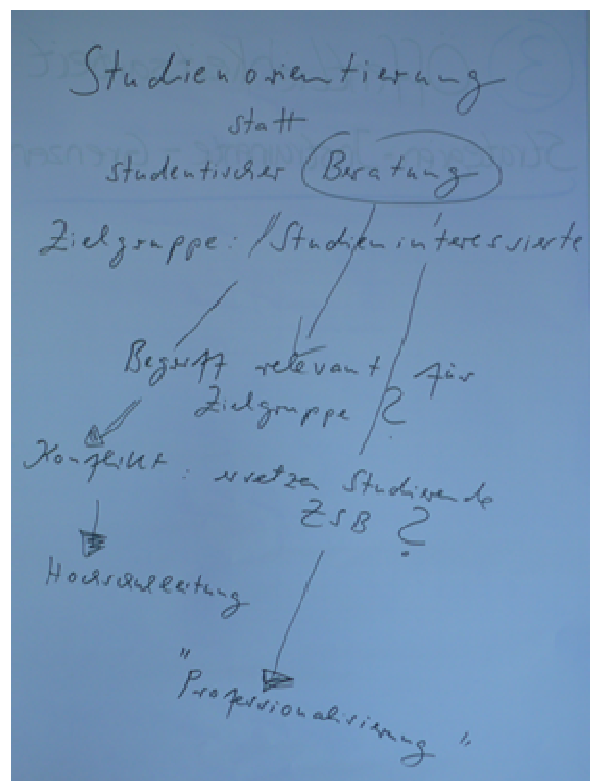 Studienorientierung
statt
studentischer Beratung
Zielgruppe: Studieninteressierte
Begriff relevant für
Zielgruppe ?
Konflikt: ersetzen Studierende
ZSB ?
Hochschulleitung
"Professionalisierung"